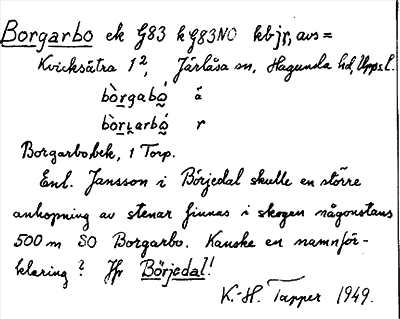 Borgarbo ek G83 k G83NO kbjr, avs =
Kvicksätra 1², Järlåsa sn, Hagunda hd, Upps.l.
bòrgabó å
bòrarbó r
Borgarbo, bek, 1 Torp.
Enl. Jansson i Börjedal skulle en större
anhopning av stenar finnas i skogen någonstans
500 m SO Borgarbo. Kanske en namnför-
klaring? Jfr Börjedal!
K.-H. Tapper 1949.